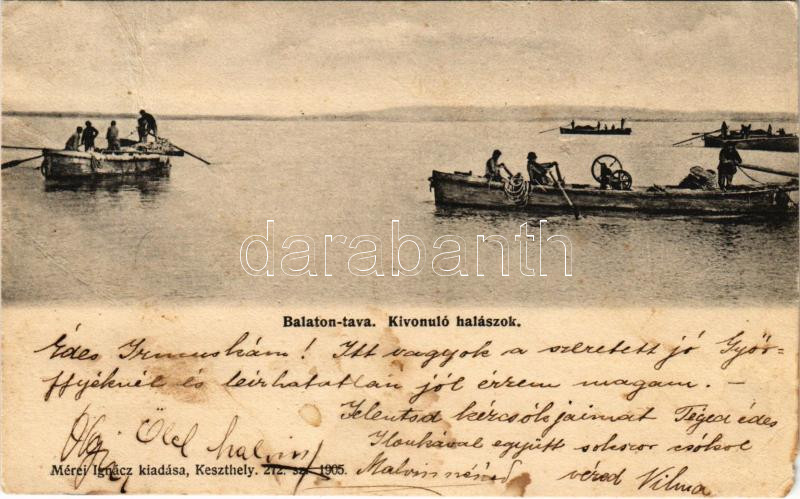 darabanth
Balaton-tava. Kivonuló halászok.
Édes Irmuskám! Itt vagyok a szeretett jó Györ-
ffyéknél és leirhatatlan jól érzem magam. –
Jelentsd kézcsókjaimat Téged édes
Ilonkával együtt sokszor csókol
Ölel
Malvin nénéd véred Vilma
Mérei Ignácz kiadása, Keszthely. 212. sz. 1905.